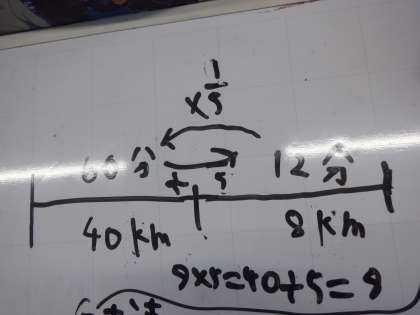 ×1/5
60分 ÷5 12分
40km 8km
8×5=40÷5=8